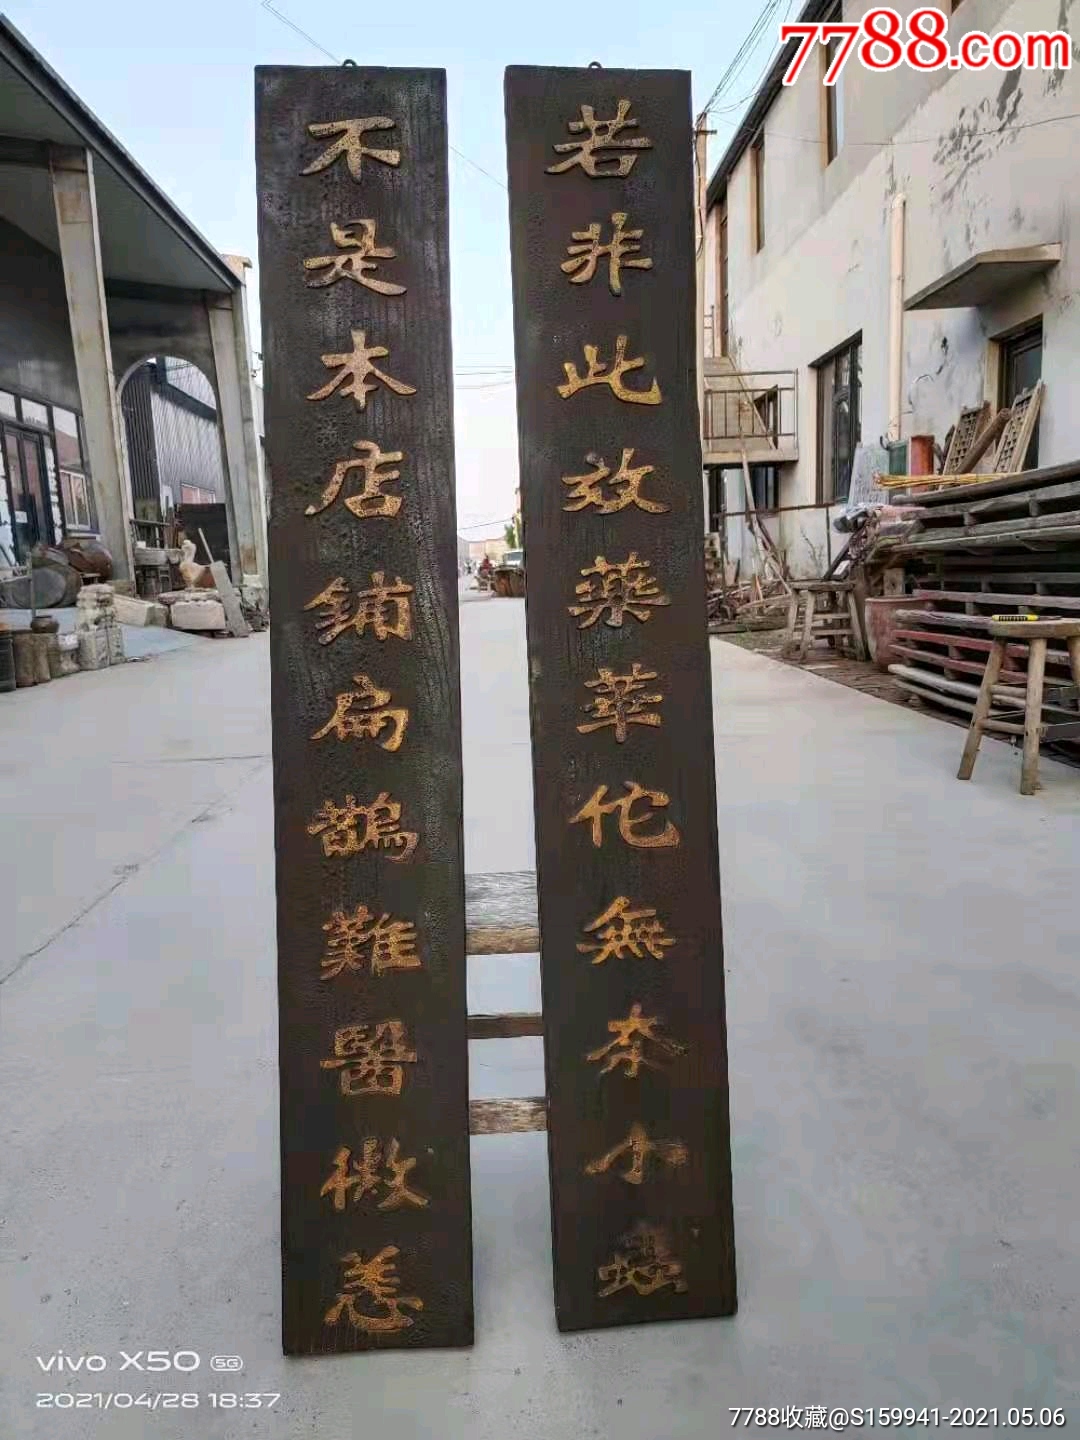 7788.com
若非此效藥華佗無奈小蟲
不是本店鋪扁鵲難醫微恙
vivo X50 5G
2021/04/28 18:37
7788收藏@S159941-2021.05.06